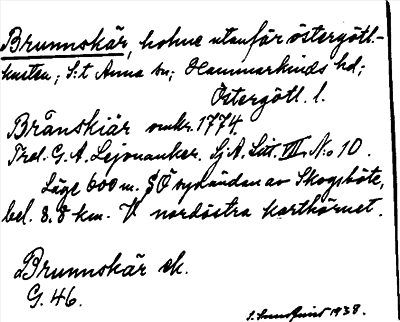 Brunnskär, holme utanför östergötl.-
kusten; S:t Anna sn; Hammarkinds hd;
Östergötl. l.
Brånskiär omkr. 1774.
Trol. G. A. Lejonanker. Sj. A. Litt. VII. No 10.
Läge 600 m. SÖ sydändan av Skogsböte,
bel. 8.8 km. V nordöstra karthörnet.
Brunnskär ek.
G. 46.
1938.